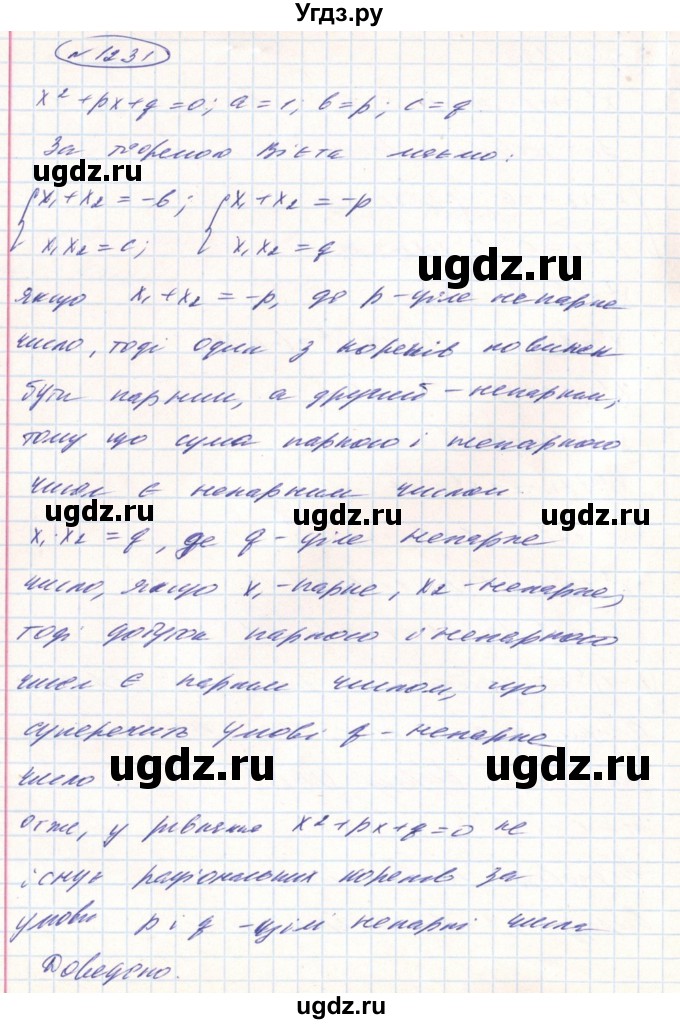 Угдз.ру
№1231
x² + px + q = 0; a = 1; b = p; c = q.
За теоремою Вієта маємо:
ugdz.ru
{ x₁ + x₂ = -b; { x₁ + x₂ = -p
x₁x₂ = c; x₁x₂ = q
ugdz.ru
якщо x₁ + x₂ = -p, де p - ціле непарне
число, тоді один з коренів повинен
бути парним, а другий - непарним,
тому що сума парного і непарного
чисел є непарним числом
ugdz.ru
ugdz.ru
x₁·x₂ = q, де q - ціле непарне
число, якщо x₁ - парне, x₂ - непарне,
тоді добуток парного і непарного
чисел є парним числом, що
суперечить умові q - непарне
число
ugdz.ru
ugdz.ru
отже, у рівняння x² + px + q = 0 не
існує раціональних коренів за
умови p і q - цілі непарні числа
Доведено.
ugdz.ru